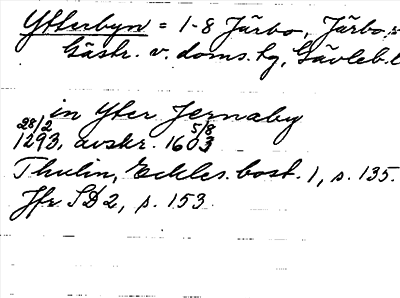 Ytterbyn = 1-8 Järbo, Järbo s
Gästr. v. doms. tg, Gävleb. l
in Yter Jernaby
28/2 1293, avskr. 5/8 1603
Thulin, Eckles. bost. 1, s. 135.
Jfr SD 2, s. 153.